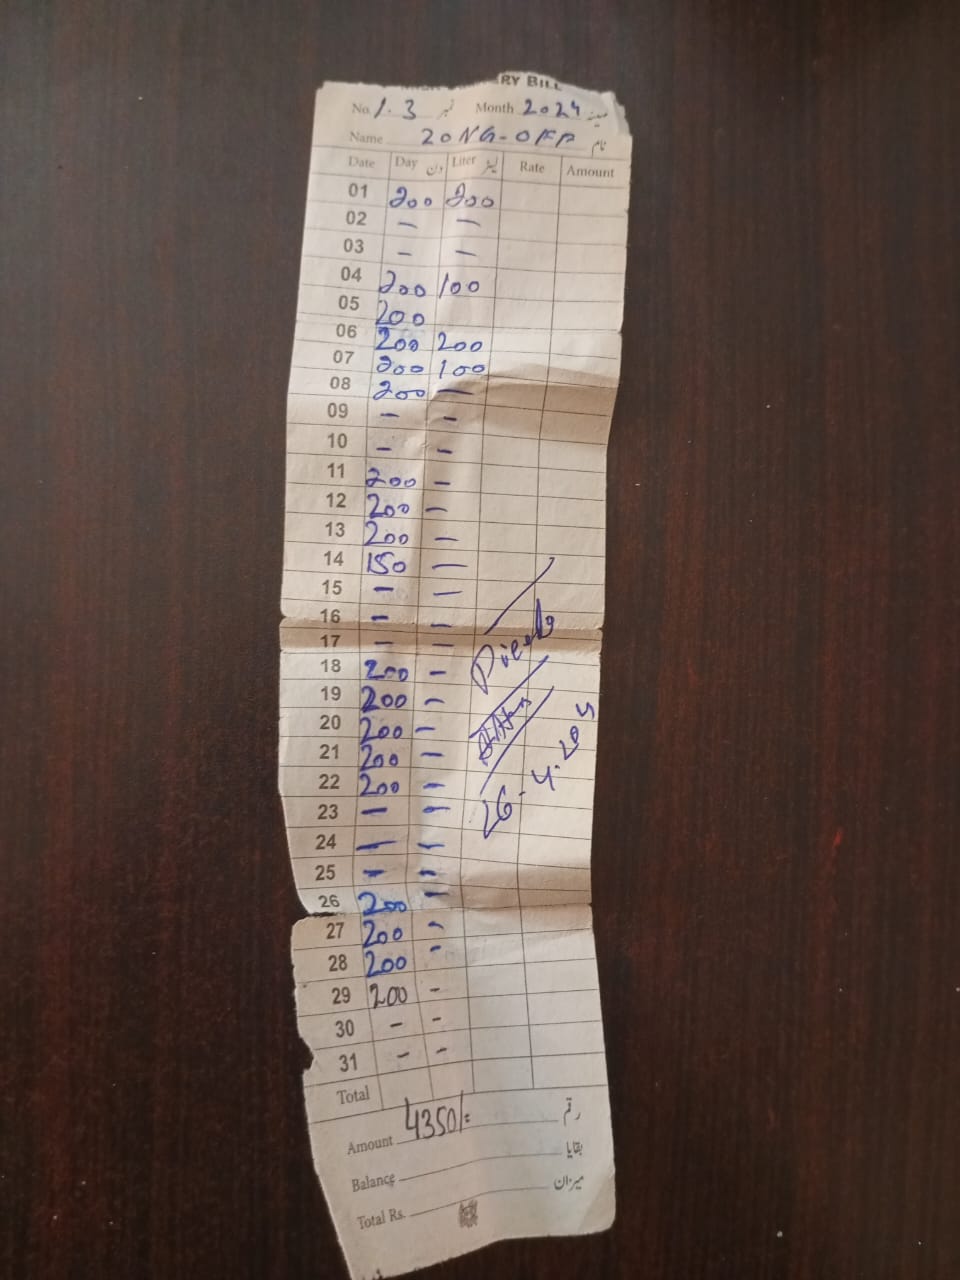 RY BILL
No. 1.3 نمبر Month 2024 مہینہ
Name 20NG-OFF نام
Date Day دن Liter لیٹر Rate Amount
01 200 200
02 — —
03 — —
04 200 100
05 200
06 200 200
07 200 100
08 200 —
09 — —
10 — —
11 200 —
12 200 —
13 200 —
14 150 —
15 — —
16 — —
17 — —
18 200 —
19 200 —
20 200 —
21 200 —
22 200 —
23 — —
24 — —
25 — —
26 200 —
27 200 —
28 200 —
29 200 -
30 - -
31 - -
26-4-204
Total
Amount 4350/= رقم
Balance بقایا
Total Rs. میزان